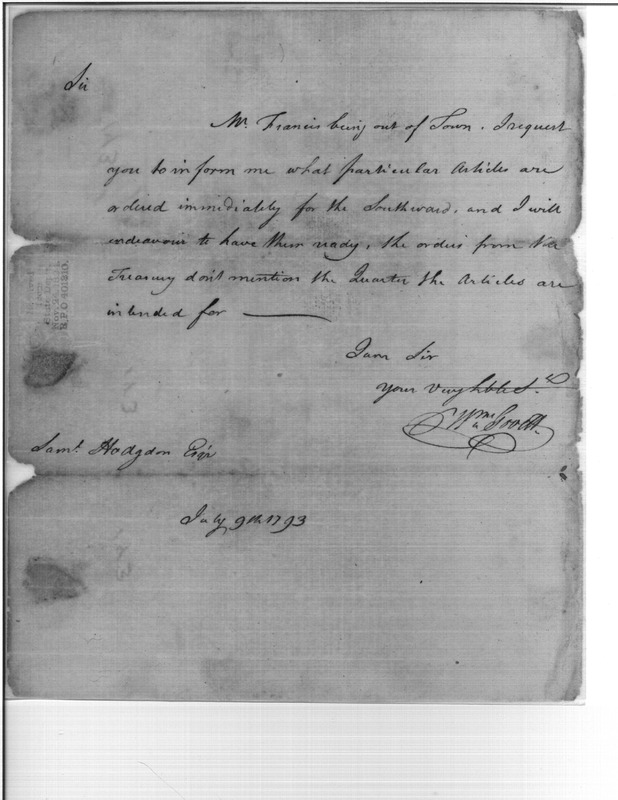 Sir
Mr. Francis being out of Town. I request
you to inform me what particular Articles are
ordered immediately for the Southward, and I will
endeavour to have them ready, the orders from the
Treasury dont mention the Quarter the Articles are
intended for
I am Sir
your very hble St.
Wm Govett.
Saml. Hodgdon Esqr
July 9th 1793